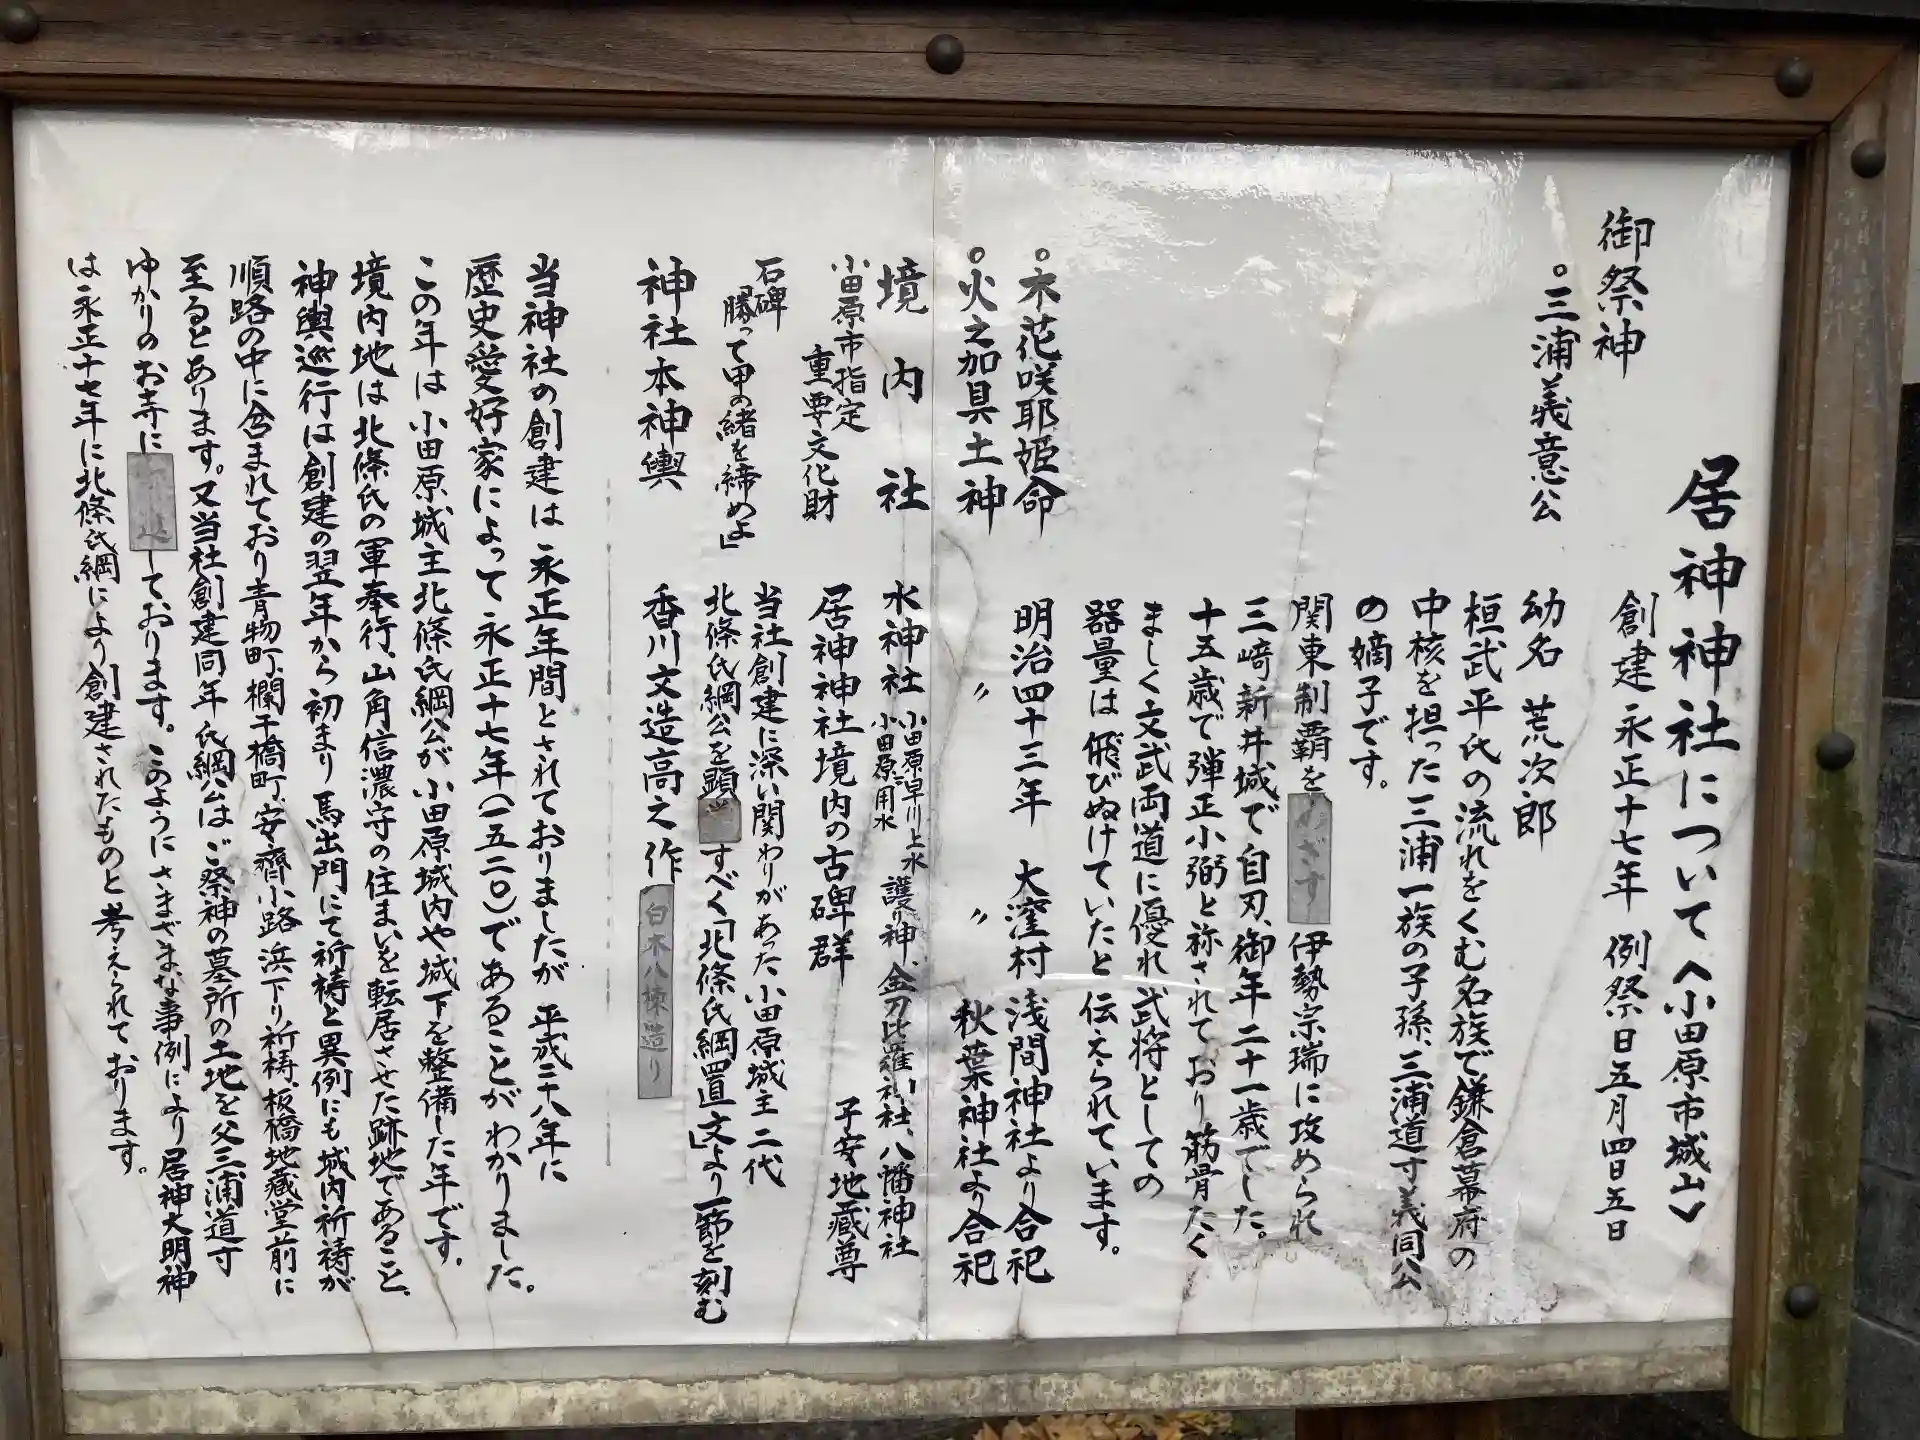 居神神社について(小田原市城山)
創建 永正十七年 例祭日五月四日五日
御祭神
。三浦義意公
幼名 荒次郎
桓武平氏の流れをくむ名族で鎌倉幕府の
中核を担った三浦一族の子孫、三浦道寸義同公
の嫡子です。
関東制覇をめざす伊勢宗瑞に攻められ
三崎新井城で自刃、御年二十一歳でした。
十五歳で弾正小弼と称されており筋骨たく
ましく文武両道に優れ武将としての
器量は飛びぬけていたと伝えられています。
。木花咲耶姫命 明治四十三年 大窪村 浅間神社より合祀
。火之加具土神 〃 〃 秋葉神社より合祀
境内社 水神社 小田原早川上水 小田原用水 護り神、金刀比羅社、八幡神社
小田原市指定
重要文化財 居神神社境内の古碑群 子安地蔵尊
石碑
「勝って甲の緒を締めよ」
当社創建に深い関わりがあった小田原城主二代
北條氏綱公を顕すべく「北條氏綱置文」より一節を刻む
神社本神輿 香川文造高之作 白木八棟造り
当神社の創建は永正年間とされておりましたが平成二十八年に
歴史愛好家によって永正十七年(一五二〇)であることがわかりました。
この年は小田原城主北條氏綱公が小田原城内や城下を整備した年です。
境内地は北條氏の軍奉行、山角信濃守の住まいを転居させた跡地であること、
神輿巡行は創建の翌年から初まり馬出門にて祈祷と異例にも城内祈祷が
順路の中に含まれており青物町、欄干橋町、安齊小路浜下り祈祷、板橋地蔵堂前に
至るとあります。又当社創建同年氏綱公はご祭神の墓所の土地を父三浦道寸
ゆかりのお寺にしております。このようにさまざまな事例により居神大明神
は永正十七年に北條氏綱により創建されたものと考えられております。